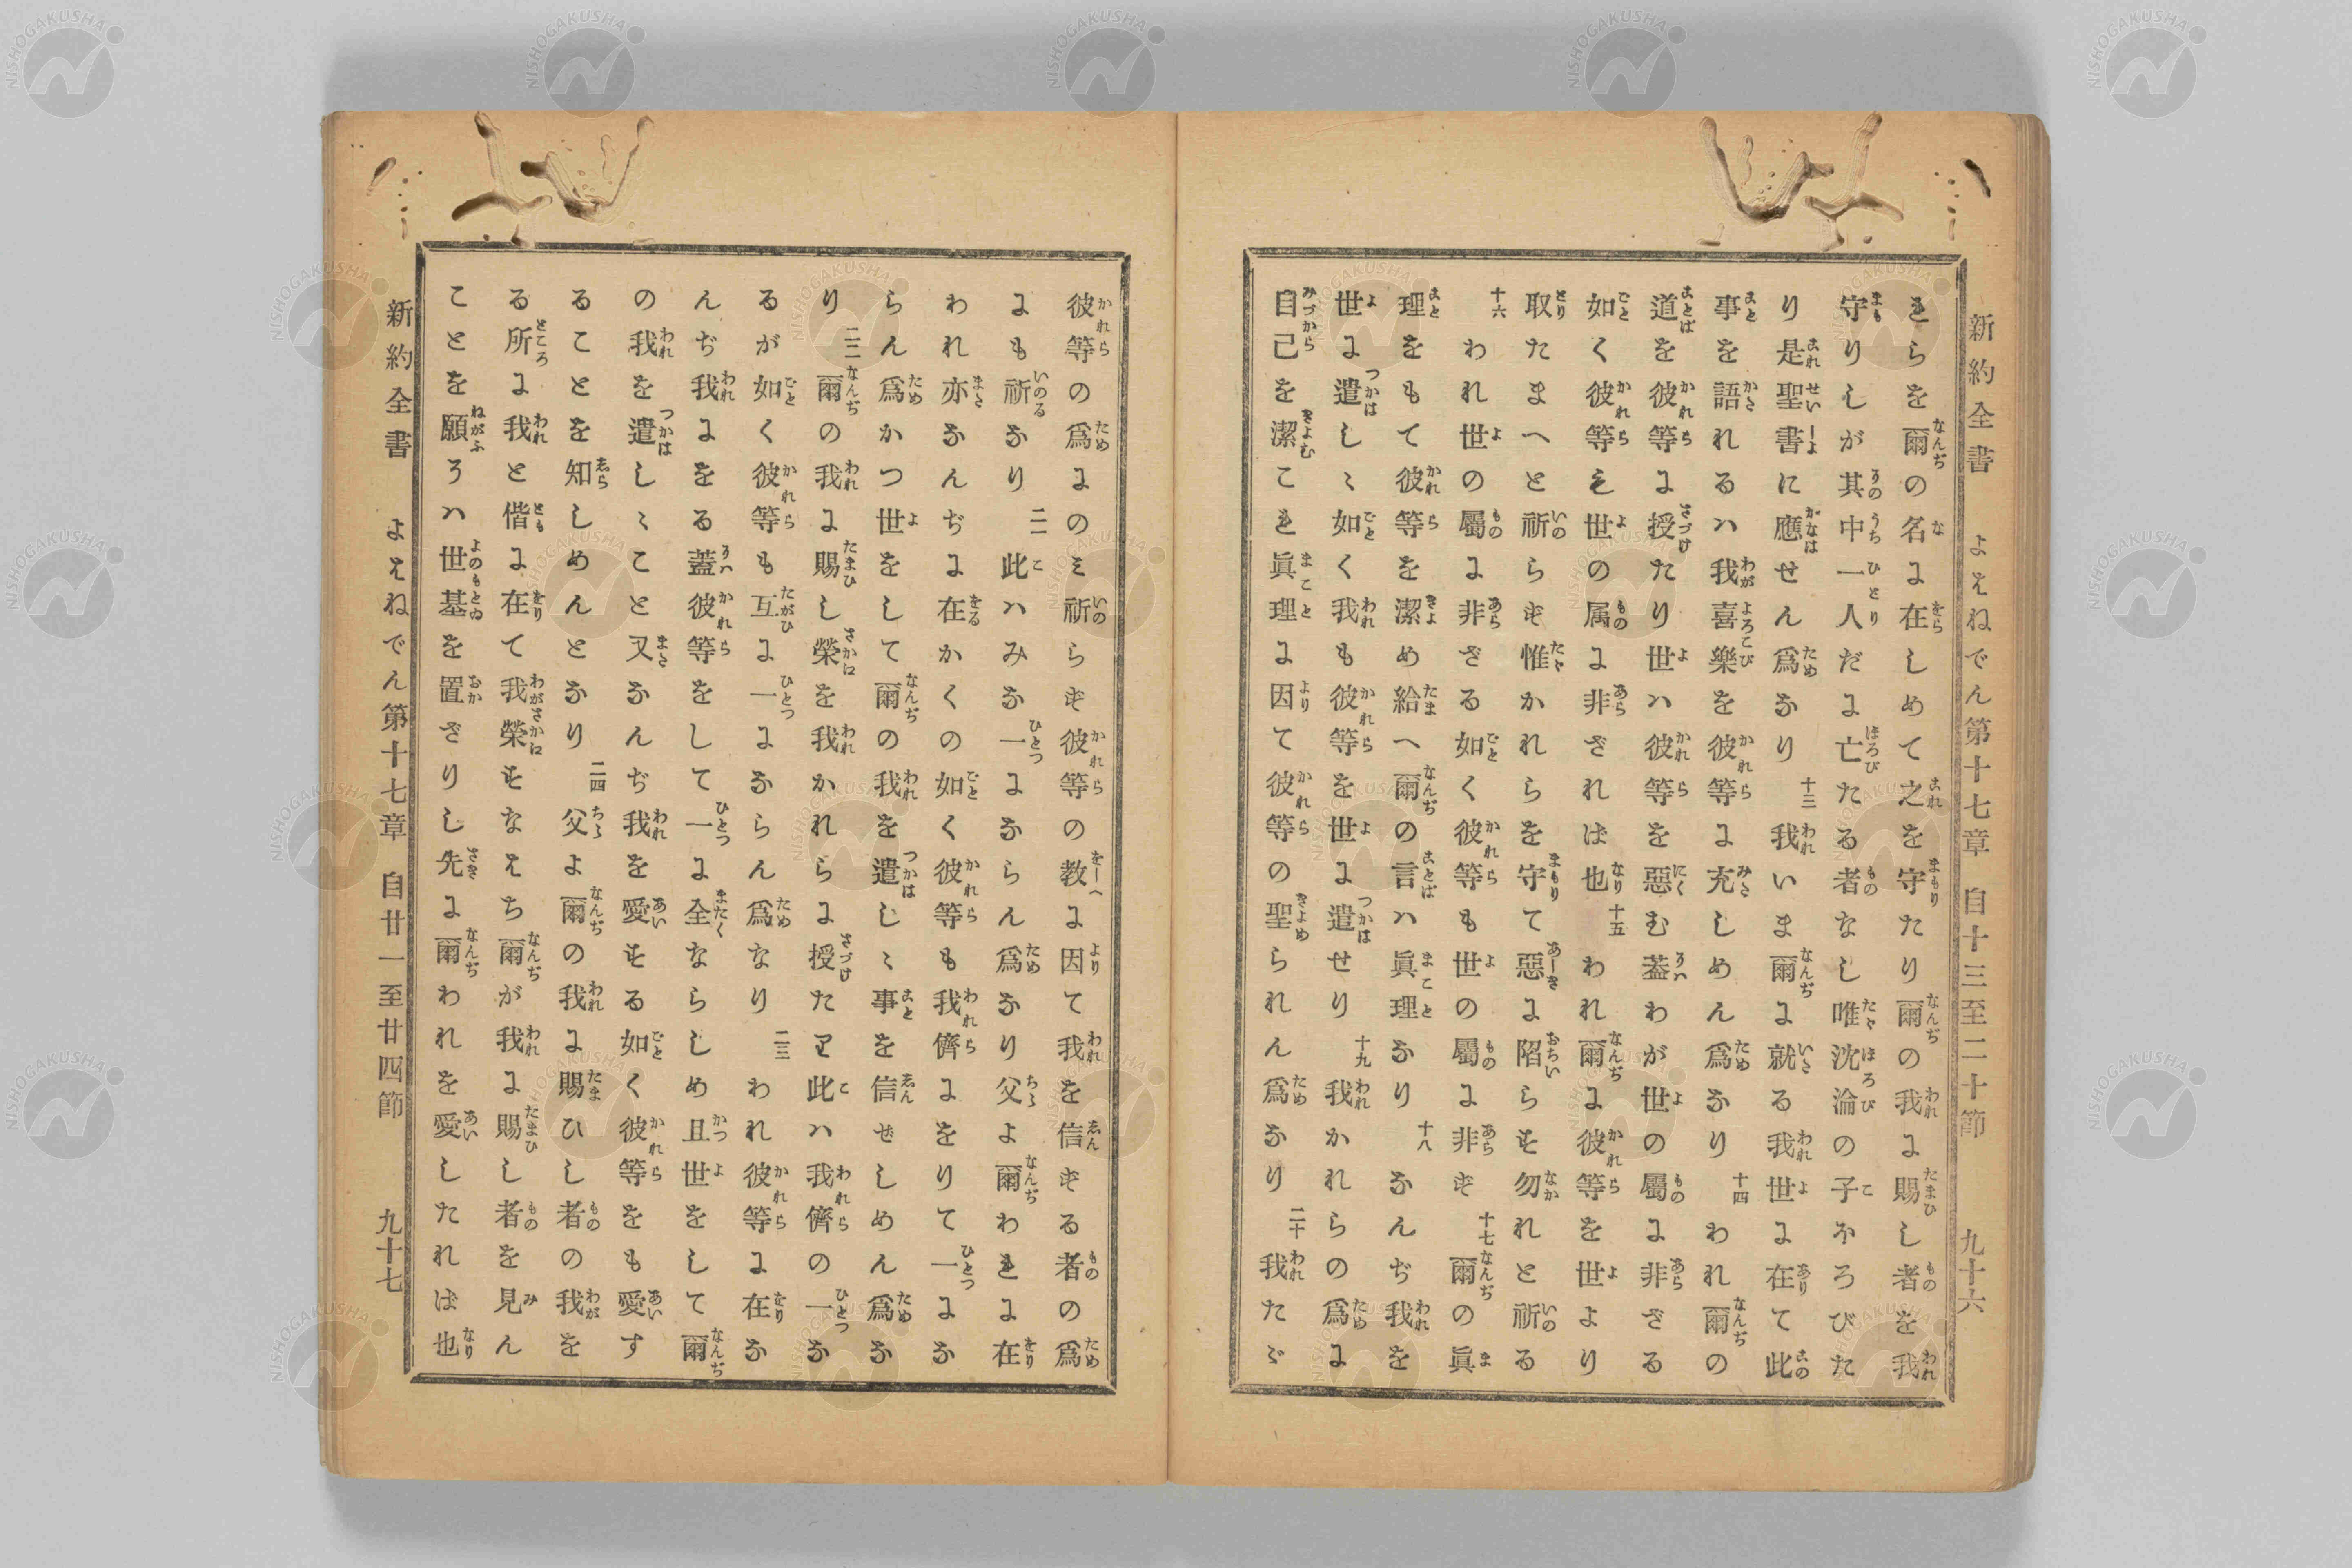 新約全書　よはねでん第十七章　自十三至二十節　九十六
れらを爾の名に在しめて之を守たり爾の我に賜し者を我
守りしが其中一人だに亡たる者なし唯沈淪の子ホろびた
り是聖書に應せん爲なり十三我いま爾に就る我世に在て此
事を語れるハ我喜樂を彼等に充しめん爲なり十四われ爾の
道を彼等に授たり世ハ彼等を惡む蓋わが世の屬に非ざる
如く彼等も世の属に非ざれば也十五われ爾に彼等を世より
取たまへと祈らず惟かれらを守て惡に陷らす勿れと祈る
十六われ世の屬に非ざる如く彼等も世の屬に非ず十七爾の眞
理をもて彼等を潔め給へ爾の言ハ眞理なり十八なんぢ我を
世に遣しゝ如く我も彼等を世に遣せり十九我かれらの爲に
自己を潔これ眞理に因て彼等の聖られん爲なり二十我たゞ
彼等の爲にのミ祈らず彼等の教に因て我を信ずる者の爲
にも祈なり二一此ハみな一にならん爲なり父よ爾われに在
われ亦なんぢに在かくの如く彼等も我儕にをりて一にな
らん爲かつ世をして爾の我を遣しゝ事を信ぜしめん爲な
り二二爾の我に賜し榮を我かれらに授たり此ハ我儕の一な
るが如く彼等も互に一にならん爲なり二三われ彼等に在な
んぢ我にをる蓋彼等をして一に全ならしめ且世をして爾
の我を遣しゝこと又なんぢ我を愛する如く彼等をも愛す
ることを知しめんとなり二四父よ爾の我に賜ひし者の我を
る所に我と偕に在て我榮すなはち爾が我に賜し者を見ん
ことを願ろハ世基を置ざりし先に爾われを愛したれば也
新約全書　よはねでん第十七章　自廿一至廿四節　九十七
NISHOGAKUSHA